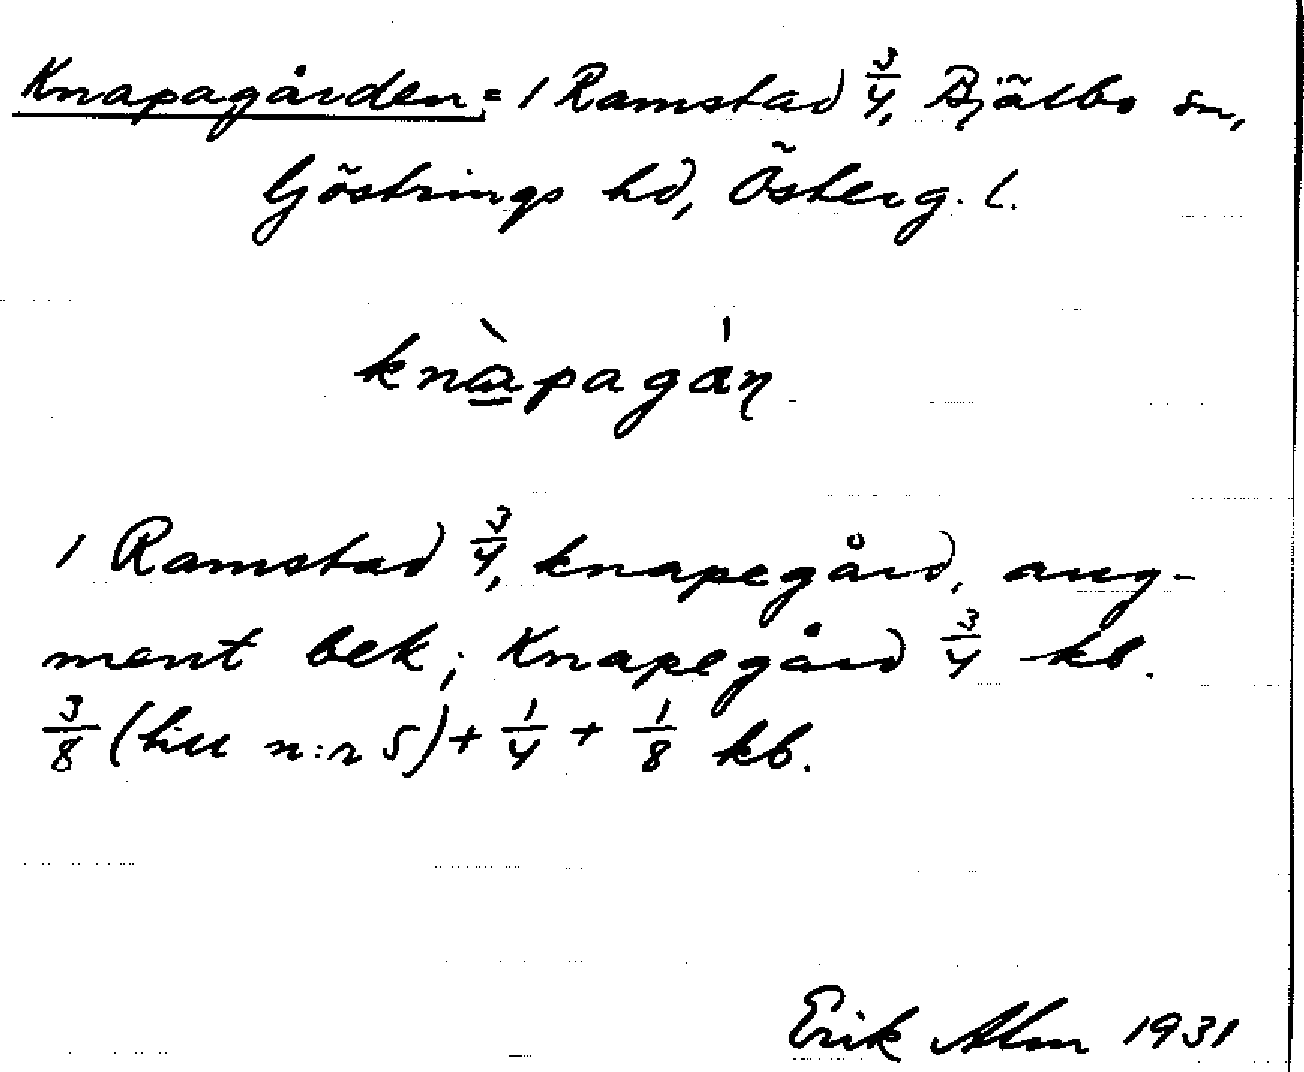 Knapagården = 1 Ramstad 3/4, Bjälbo sn,
Göstrings hd, Österg. l.
knàpagán
1 Ramstad 3/4, knapegård, aug-
ment bek; Knapegård 3/4 kb.
3/8 (till n:r 5) + 1/4 + 1/8 kb.
Erik Alm 1931